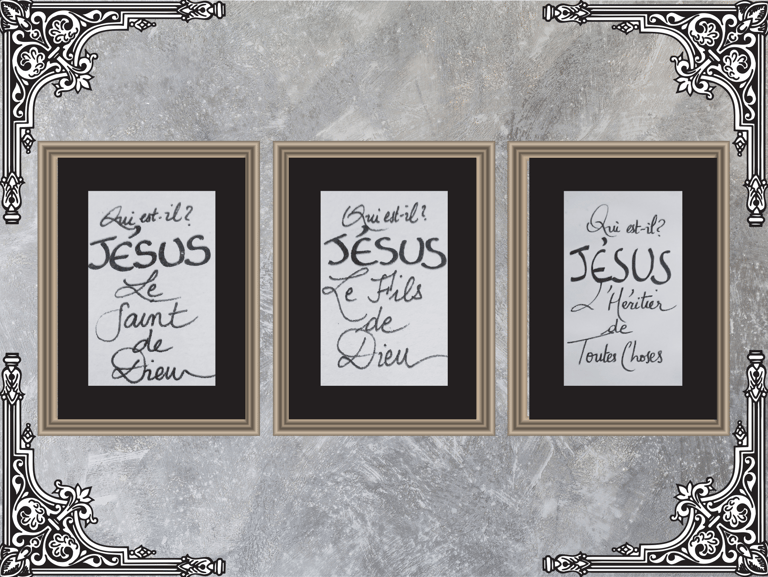 Qui est-il?
JÉSUS
Le
Saint
de
Dieu
Qui est-il?
JÉSUS
Le Fils
de
Dieu
Qui est-il?
JÉSUS
L'Héritier
de
Toutes Choses